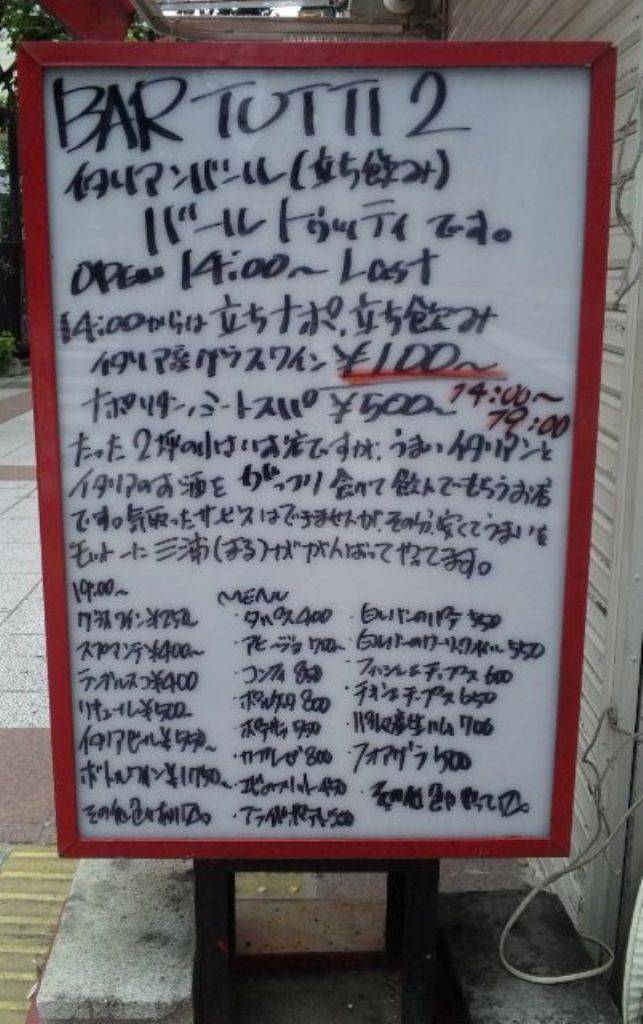 BAR TUTTI 2
イタリアンバール(立ち飲み)
バールトゥッティです。
OPEN 14:00～Last
14:00からは立ちナポ、立ち飲み
イタリア産グラスワイン ¥100～
ナポリタン、ミートスパ ¥500～ 14:00～19:00
たった2坪の小さいお店ですが、うまいイタリアンと
イタリアのお酒をがっつり食べて飲んでもらうお店
です。気取ったサービスはできませんが、その分、安くてうまいを
モットーに三浦(まる)ナガがんばってやってます。
19:00～
MENU
グラスワイン¥250～
スプマンテ¥400～
ランブルスコ¥400
リキュール¥500～
イタリアビール¥550～
ボトルワイン¥1750～
その他色々あり〼。
・タパス400
・アヒージョ700～
・コンフィ 850
・ポルケッタ 800
・550
・カプレーゼ 800
・450
・フライドポテト500
・白レバーのパテ 550
・白レバーの 550
・フィッシュ&チップス 600
・チキン&チップス 650
・パルマ産生ハム 700
・フォアグラ 500
・その他色々やって〼。